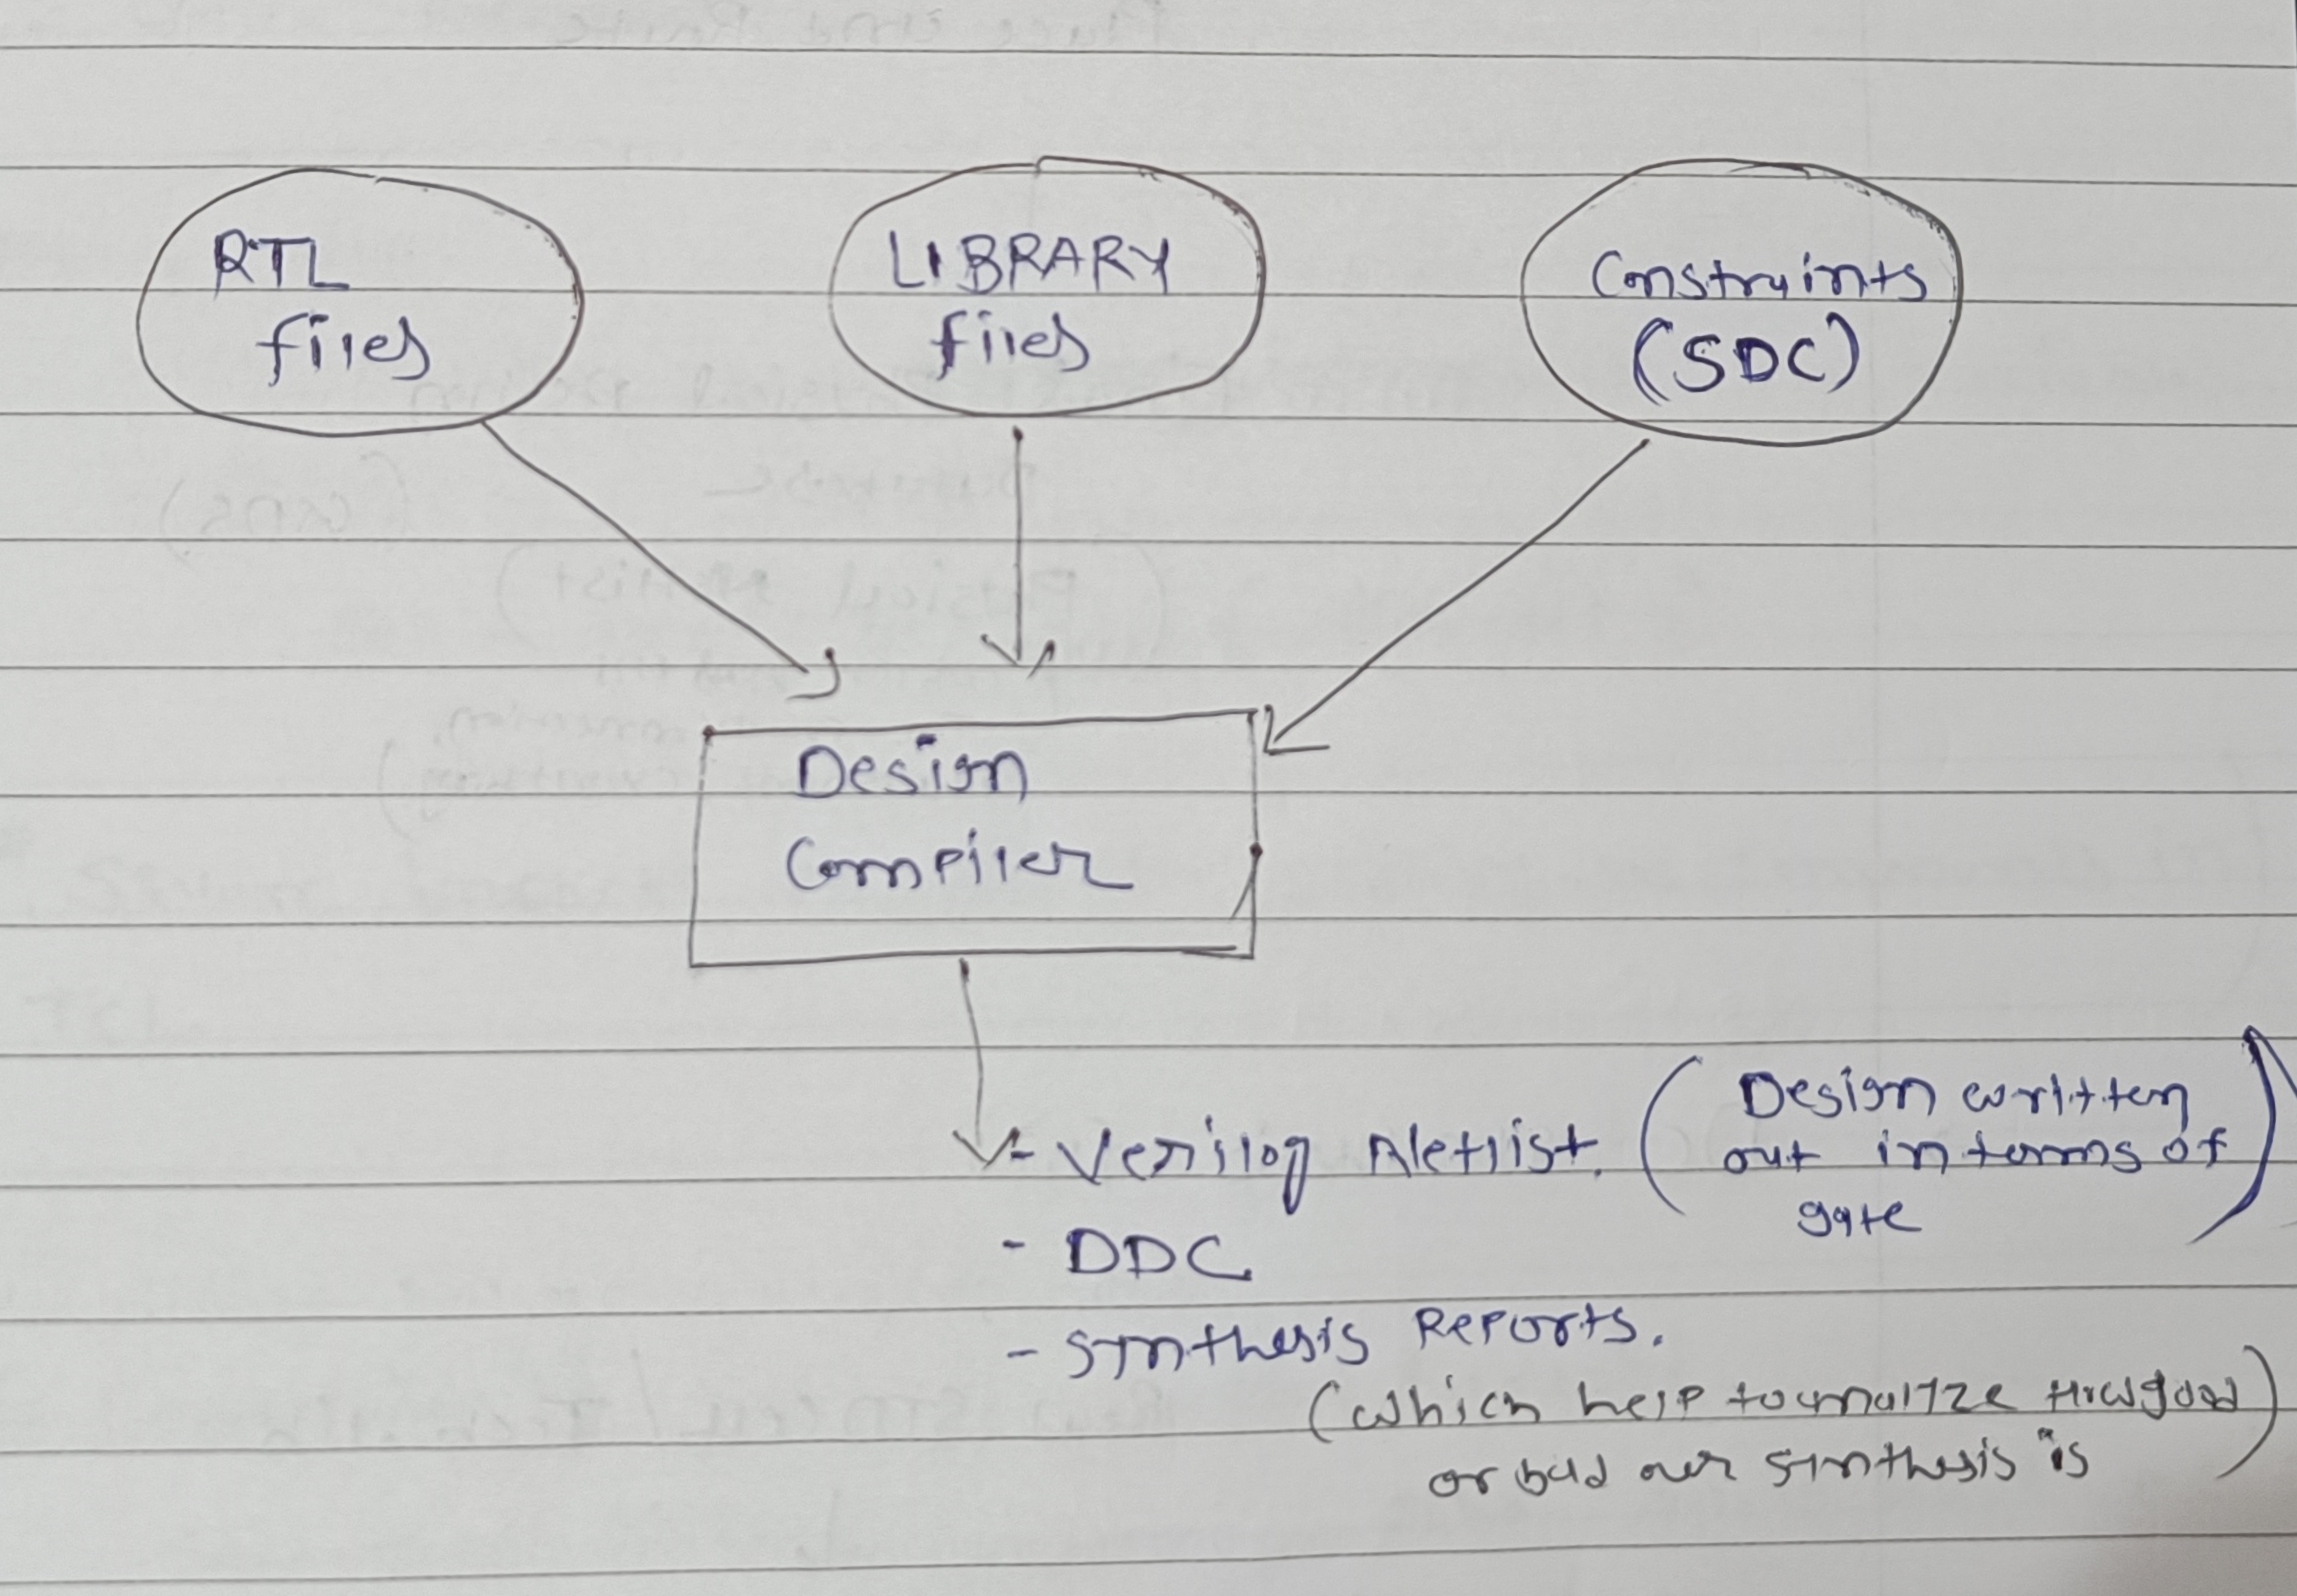 RTL
files
LIBRARY
files
Constraints
(SDC)
Design
Compiler
- Verilog Netlist. (Design written
out in terms of
gate)
- DDC
- Synthesis Reports.
(which help to analyze how good
or bad our synthesis is)